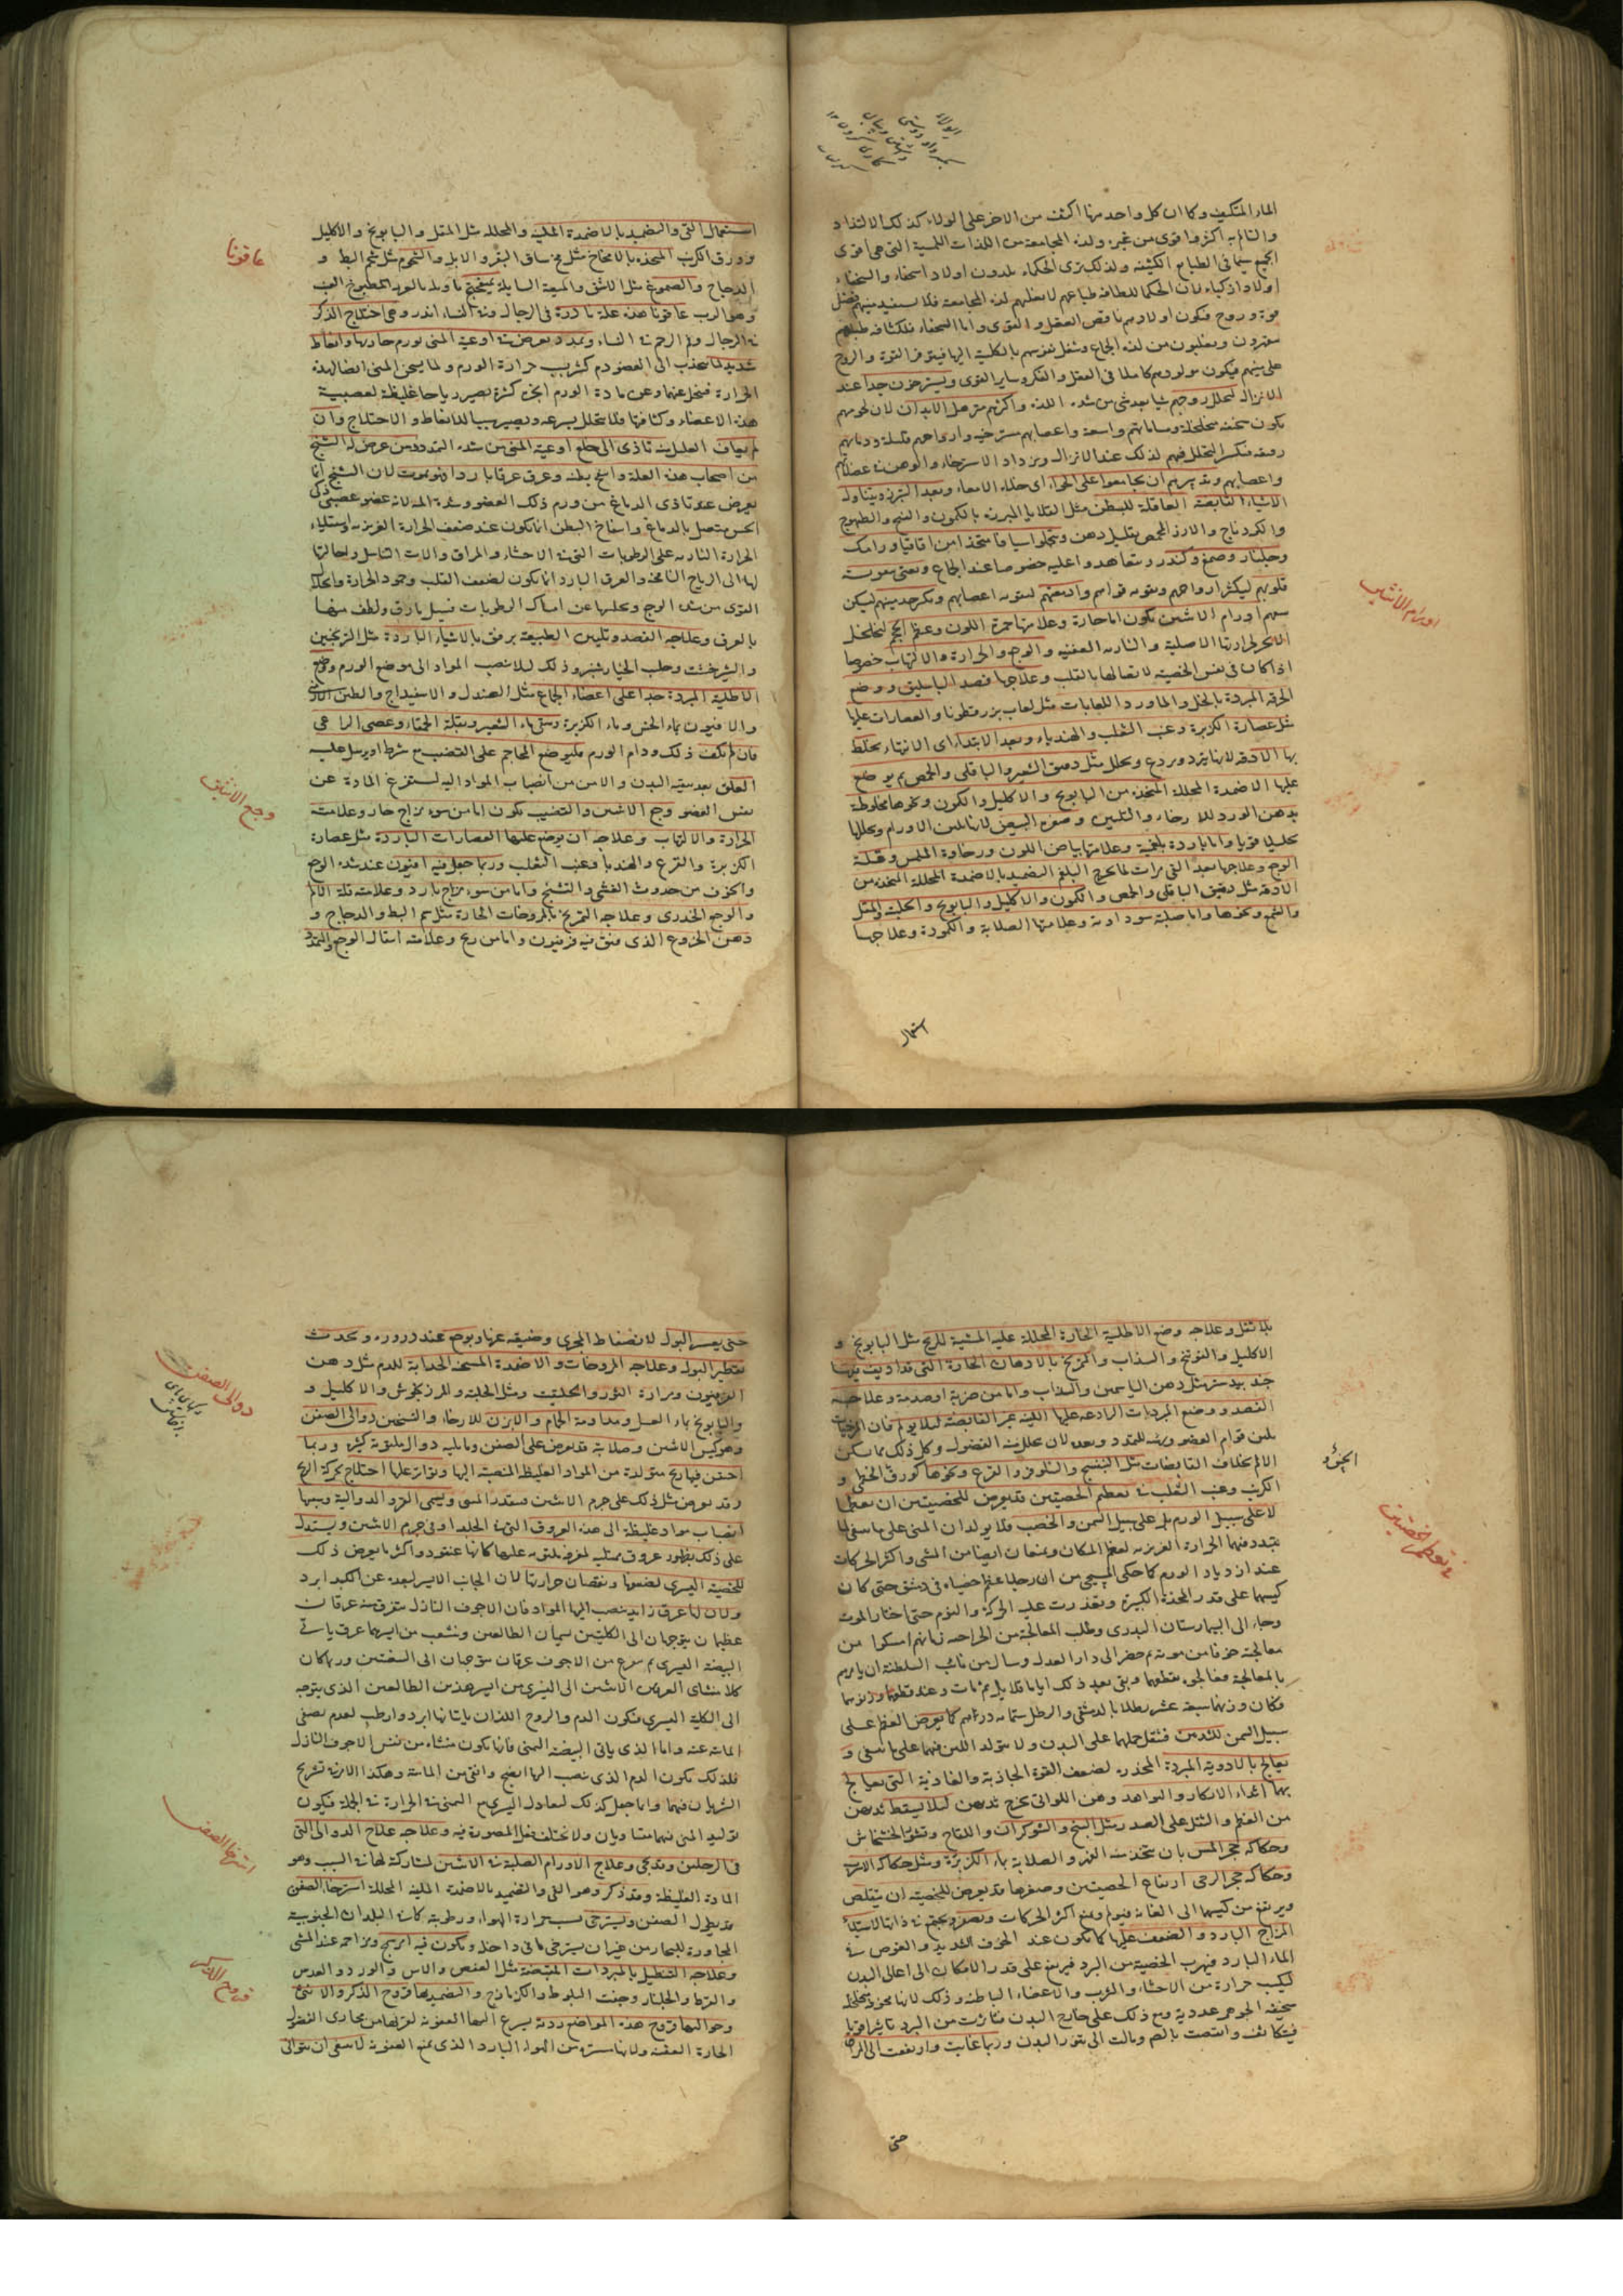 الماء المتكيف وكما ان كل واحد منها اكثف من الاخر على الولاء كذلك الالتذاذ
والتألم به اكثر واقوى من غيره ولذة المجامعة من اللذات اللمسية التى هى اقوى
الجميع سيما فى الطبايع الكثيفة ولذلك ترى الحكماء يلدون اولادا سخفاء والسخفاء
اولادا ذكياء لان الحكماء للطافة طباعهم لا تغلبهم لذة المجامعة فلا يستفيد منيهم فضل
قوة وروح فيكون اولادهم ناقصى العقل والقوى واما السخفاء فلكثافة طبايعهم
على منيهم فيكون مولودهم كاملا فى العقل والفكر وساير القوى ويسترخون جدا عند
الانزال لتحلل روحهم شيا بعد شى من شدة اللذة واكثرهم مترهل الابدان لان لحومهم
تكون سخيفة متخلخلة ومساماتهم واسعة واعصابهم مسترخية وارواحهم قليلة ودماءهم
رقيقة فيكثر التحلل فيهم لذلك عند الانزال ويزداد الاسترخاء والوهن فى عضلاتهم
واعصابهم وتدبيرهم ان يجامعوا على الخواء اى خلاء الامعاء وبعد التبرز ويتناولوا
الاشياء القابضة العاقلة للبطن مثل القلايا المبزرة بالكمون
والكردناج والارز المحمص بقليل دهن ويتحملوا شيافا متخذا من اقاقيا ورامك
وجلنار وصمغ وكندر ويتعاهدوا عليه خصوصا عند الجماع ويعتنى بتقوية
قلوبهم ليكثر ارواحهم وتقوية قواهم وادمغتهم لتقوية اعصابهم
اورام الانثيين تكون اما حارة وعلامتها حمرة اللون وعظم الحجم
الحرارتها الاصلية والنارية العفنية والوجع والحرارة والالتهاب خصوصا
اذا كان فى نفس الخصية لاتصالها بالقلب وعلاجها فصد الباسليق ووضع
الخرقة المبردة بالخل والماورد واللعابات مثل لعاب بزرقطونا والعصارات عليها
مثل عصارة الكزبرة وعنب الثعلب والهندباء وبعد الابتداء اى الانتهاء يخلط
بها الادقة لانها تبرد وتردع وتحلل مثل دقيق الشعير والباقلى والحمص ثم يوضع
عليها الاضمدة المحللة المتخذة من البابونج والاكليل والكمون ونحوها مخلوطة
بدهن الورد للارخاء والتليين وصفرة البيض لانها تلين الاورام وتحللها
تحليلا قويا واما باردة بلغمية وعلامتها بياض اللون ورخاوة الملمس وقلة
الوجع وعلاجها بعد القى مرات لما يخرج البلغم التضميد بالاضمدة المحللة المتخذة من
الادقة مثل دقيق الباقلى والحمص والكمون والاكليل والبابونج والحلبة والمقل
والشحم ونحوها واما صلبة سوداوية وعلامتها الصلابة والكمودة وعلاجها
اورام الانثيين
استعمال
استعمال القى والتضميد بالاضمدة الملينة والمحللة مثل المقل والبابونج والاكليل
وورق الكرنب المتخذة بالامخاخ مثل مخ ساق البقر والابل والشحوم مثل شحم البط و
الدجاج والصموغ مثل الاشق والميعة السايلة
عاقونا هذه علة نادرة فى الرجال وفى النساء اندر وهى اختلاج الذكر
فى الرجال وفم الرحم فى النساء وتمدد يعرض فى اوعية المنى من ورم حار بها وانعاظ
شديد لما ينجذب الى العضو دم كثير بسبب حرارة الورم ولما يسخن المنى ايضا لهذه
الحرارة فيتحلل عنها وعن مادة الورم ابخرة كثيرة يصير رياحا غليظة لعصبية
هذه الاعضاء وكثافتها فلا يتحلل بسرعة ويصير سببا للانعاظ والاختلاج وان
لم يعالج العليل منه تاذى الى خلع اوعية المنى من شدة التمدد ومن عرض له التشنج
من اصحاب هذه العلة وانتفخ بطنه وعرق عرقا باردا فهو يموت لان التشنج انما
يعرض عند تاذى الدماغ من ورم ذلك العضو وشدة المه لانه عضو عصبى ذكى
الحس متصل بالدماغ وانتفاخ البطن انما يكون عند ضعف الحرارة الغريزية واستيلاء
الحرارة النارية على الرطوبات التى فى الاحشاء والمراق والات التناسل واحالتها
لها الى الرياح النافخة والعرق البارد انما يكون لضعف القلب وخمود الحرارة وانحلال
القوى من شدة الوجع وتخليها عن امساك الرطوبات فيسيل ما رق ولطف منها
بالعرق وعلاجه الفصد وتليين الطبيعة برفق بالاشياء الباردة مثل الترنجبين
والشيرخشت ولب الخيار شنبر وذلك ليلا تنصب المواد الى موضع الورم ووضع
الاطلية المبردة جدا على اعضاء الجماع مثل الصندل والاسفيداج والطين الارمنى
والافيون بماء الخس وماء الكزبرة وسقى ماء الشعير وبقلة الحمقاء وعصى الراعى
فان لم يكف ذلك ودام الورم فليوضع المحاجم على القضيب مع شرط او يرسل عليه
العلق بعد تنقية البدن والامن من انصباب المواد اليه ليستفرغ المادة عن
نفس العضو وجع الانثيين والقضيب يكون اما من سوء مزاج حار وعلامته
الحرارة والالتهاب وعلاجه ان يوضع عليها العصارات الباردة مثل عصارة
الكزبرة والقرع والهندبا وعنب الثعلب وربما جعل فيه افيون عند شدة الوجع
والخوف من حدوث الغشى والتشنج واما من سوء مزاج بارد وعلامته قلة الالم
والوجع الخدرى وعلاجه التمريخ بالمروخات الحارة مثل شحم البط والدجاج و
دهن الخروع الذى فتق فيه فرفيون واما من ريح وعلامته انتقال الوجع والتمدد
عاقونا
وجع الانثيين
بلا ثقل وعلاجه وضع الاطلية الحارة المحللة عليه المفشية للريح مثل البابونج و
الاكليل والفوتنج والسذاب والتمريخ بالادهان الحارة التى قد اذيب فيها
جندبيدستر مثل دهن الياسمين والسذاب واما من ضربة او صدمة وعلاجه
الفصد ووضع المبردات الرادعة عليها اللينة غير القابضة ليلا يولم فان المرخيات
تلين قوام العضو وتهيئه للتمدد وتعده لان يتحلل منه الفضول وكل ذلك مما يسكن
الالم بخلاف القابضات مثل البنفسج والنيلوفر والقرع ونحوها كورق الخطمى و
الكرنب وعنب الثعلب فى تعظم الخصيتين قد يعرض للخصيتين ان تعظما
لا على سبيل الورم بل على سبيل السمن والخصب فلا يولدان المنى على ما ينبغى لما
يتبدد فيهما الحرارة الغريزية لعظم المكان ويمنعان ايضا من المشى واكثر الحركات
عند ازدياد الورم كما حكى المسيحى من ان رجلا عظم خصياه فى دمشق حتى كان
كيسهما على قدر المخدة الكبيرة وتعذرت عليه الحركة والنوم حتى اختار الموت
وجاء الى البيمارستان البدرى وطلب المعالجة من الجراحية فانهم امسكوا من
معالجته خوفا من موته ثم حضر الى دار العدل وسال من نائب السلطنة ان يامرهم
بالمعالجة فعالجوه بقطعهما وبقى بعد ذلك اياما قلايل ثم مات وعند قطعهما وزنوهما
فكان وزنهما سبعة عشر رطلا بالدمشقى والرطل ستماية درهم كما يعرض العظم على
سبيل السمن للثديين فيثقل حملهما على البدن ولا يتولد اللبن فيهما على ما ينبغى و
يعالج بالادوية المبردة المخدرة لضعف القوة الجاذبة والغاذية التى يعالج
بها اثداء الابكار والنواهد وهن اللواتى يخرج ثديهن ليلا يسقط ثديهن
من العظم والثقل على الصدر مثل البنج والشوكران واللفاح وقشور الخشخاش
وحكاكة حجر المسن بان يتخذ منه الفهر والصلاية بماء الكزبرة ومثل حكاكة الاسرب
وحكاكة حجر الرحى ارتفاع الخصيتين وصغرها قد يعرض للخصية ان يتقلص
ويرتفع من كيسها الى العانة فيولم ويمنع اكثر الحركات ويصغر ويجتمع فى ذاتها لاستيلاء
المزاج البارد والضعف عليها كما يكون عند الخوف الشديد والغوص فى
الماء البارد فيهرب الخصية من البرد فيرتفع على قدر الامكان الى اعالى البدن
لتكسب حرارة من الاحشاء والثرب والاعضاء الباطنة وذلك لانها مخوة متخلخلة
سخيفة الجوهر غددية ومع ذلك على خارج البدن فتاثرت من البرد تاثيرا قويا
فيتكاثف وانتصت بالضم ومالت الى قعر البدن وربما غابت وارتفعت الى المراق
تعظم الخصيتين
حتى
حتى يعسر البول لانضغاط المجرى وضيقه عنها ويوجع عند دروره ويحدث
تقطير البول وعلاجه المروخات والاضمدة المسخنة الجذابة للدم مثل دهن
الفرفيون ومرارة الثور والحلتيت ومثل الحلبة والمرزنجوش والاكليل و
والبابونج بماء العسل ومداومة الحمام والابزن للارخاء والتسخين دوالى الصفن
وهو كيس الانثيين وصلابته قد يعرض على الصفن وما يليه دوال ملتوية كثيرة وربما
احتقن فيها ريح متولدة من المواد الغليظة المنصبة اليها وتواتر عليها اختلاج بحركة الريح
وقد يعرض مثل ذلك على جرم الانثيين ويسمى القرو الدوالية وسببها
انصباب مواد غليظة الى هذه العروق التى فى الجلد او فى جرم الانثيين ويستدل
على ذلك بظهور عروق ممتلية ملتوية عليها كانها عنقود واكثر ما يعرض ذلك
للخصية اليسرى لضعفها ونقصان حرارتها لان الجانب الايسر لبعده عن الكبد ابرد
ولان لها عرق زايد ينصب اليها المواد فان الاجوف النازل يتفرق منه عرقان
عظيمان يتوجهان الى الكليتين يسميان الطالعين ويتشعب من ايسرهما عرق ياتى
البيضة اليسرى ثم يتفرع من الاجوف عرقان يتوجهان الى البيضتين وربما كان
كلا منشاى العرقين الاتيين الى اليسرى من ايسر هذين الطالعين الذى يتوجه
الى الكلية اليسرى فيكون الدم والروح اللذان ياتيانها ابرد وارطب لعدم تصفى
المائية عنه واما الذى ياتى البيضة اليمنى فانما يكون منشاءه من نفس الاجوف النازل
فلذلك يكون الدم الذى ينصب اليها انضج وانقى من المائية وهكذا الامر فى تشريح
الشريان فيهما وانما جعل كذلك ليعادل اليسرى مع اليمنى فى الحرارة فى الجملة فيكون
توليد المنى فيهما متساويان ولا يختلف فعل المصورة فيه وعلاجه علاج الدوالى التى
فى الرجلين وعلاج الاورام الصلبة فى الانثيين لمشاركة لهما فى السبب وهو
المادة الغليظة وقد ذكر وهو القى والتضميد بالاضمدة الملينة المحللة استرخاء الصفن
قد يطول الصفن ويسترخى بسبب حرارة الهواء ورطوبته كما فى البلدان الجنوبية
المجاورة للبحار من غير ان يسترخى ما فى داخله ويكون فيه امر سمج ومزاحمة عند المشى
وعلاجه التنطيل بالمبردات المقبضة مثل العفص والاس والورد والعدس
والقرظ والجلنار وجفت البلوط والكزمازج والتضميد بها قروح الذكر والانثيين
وحواليهما قروح هذه المواضع ردية يسرع اليها العفونة لقربها من مجارى الفضول
الحارة العفنة ولانها مستورة من الهواء البارد الذى يمنع العفونة لا ينبغى ان يتوانى
دوالى الصفن
استرخاء الصفن
قروح الذكر